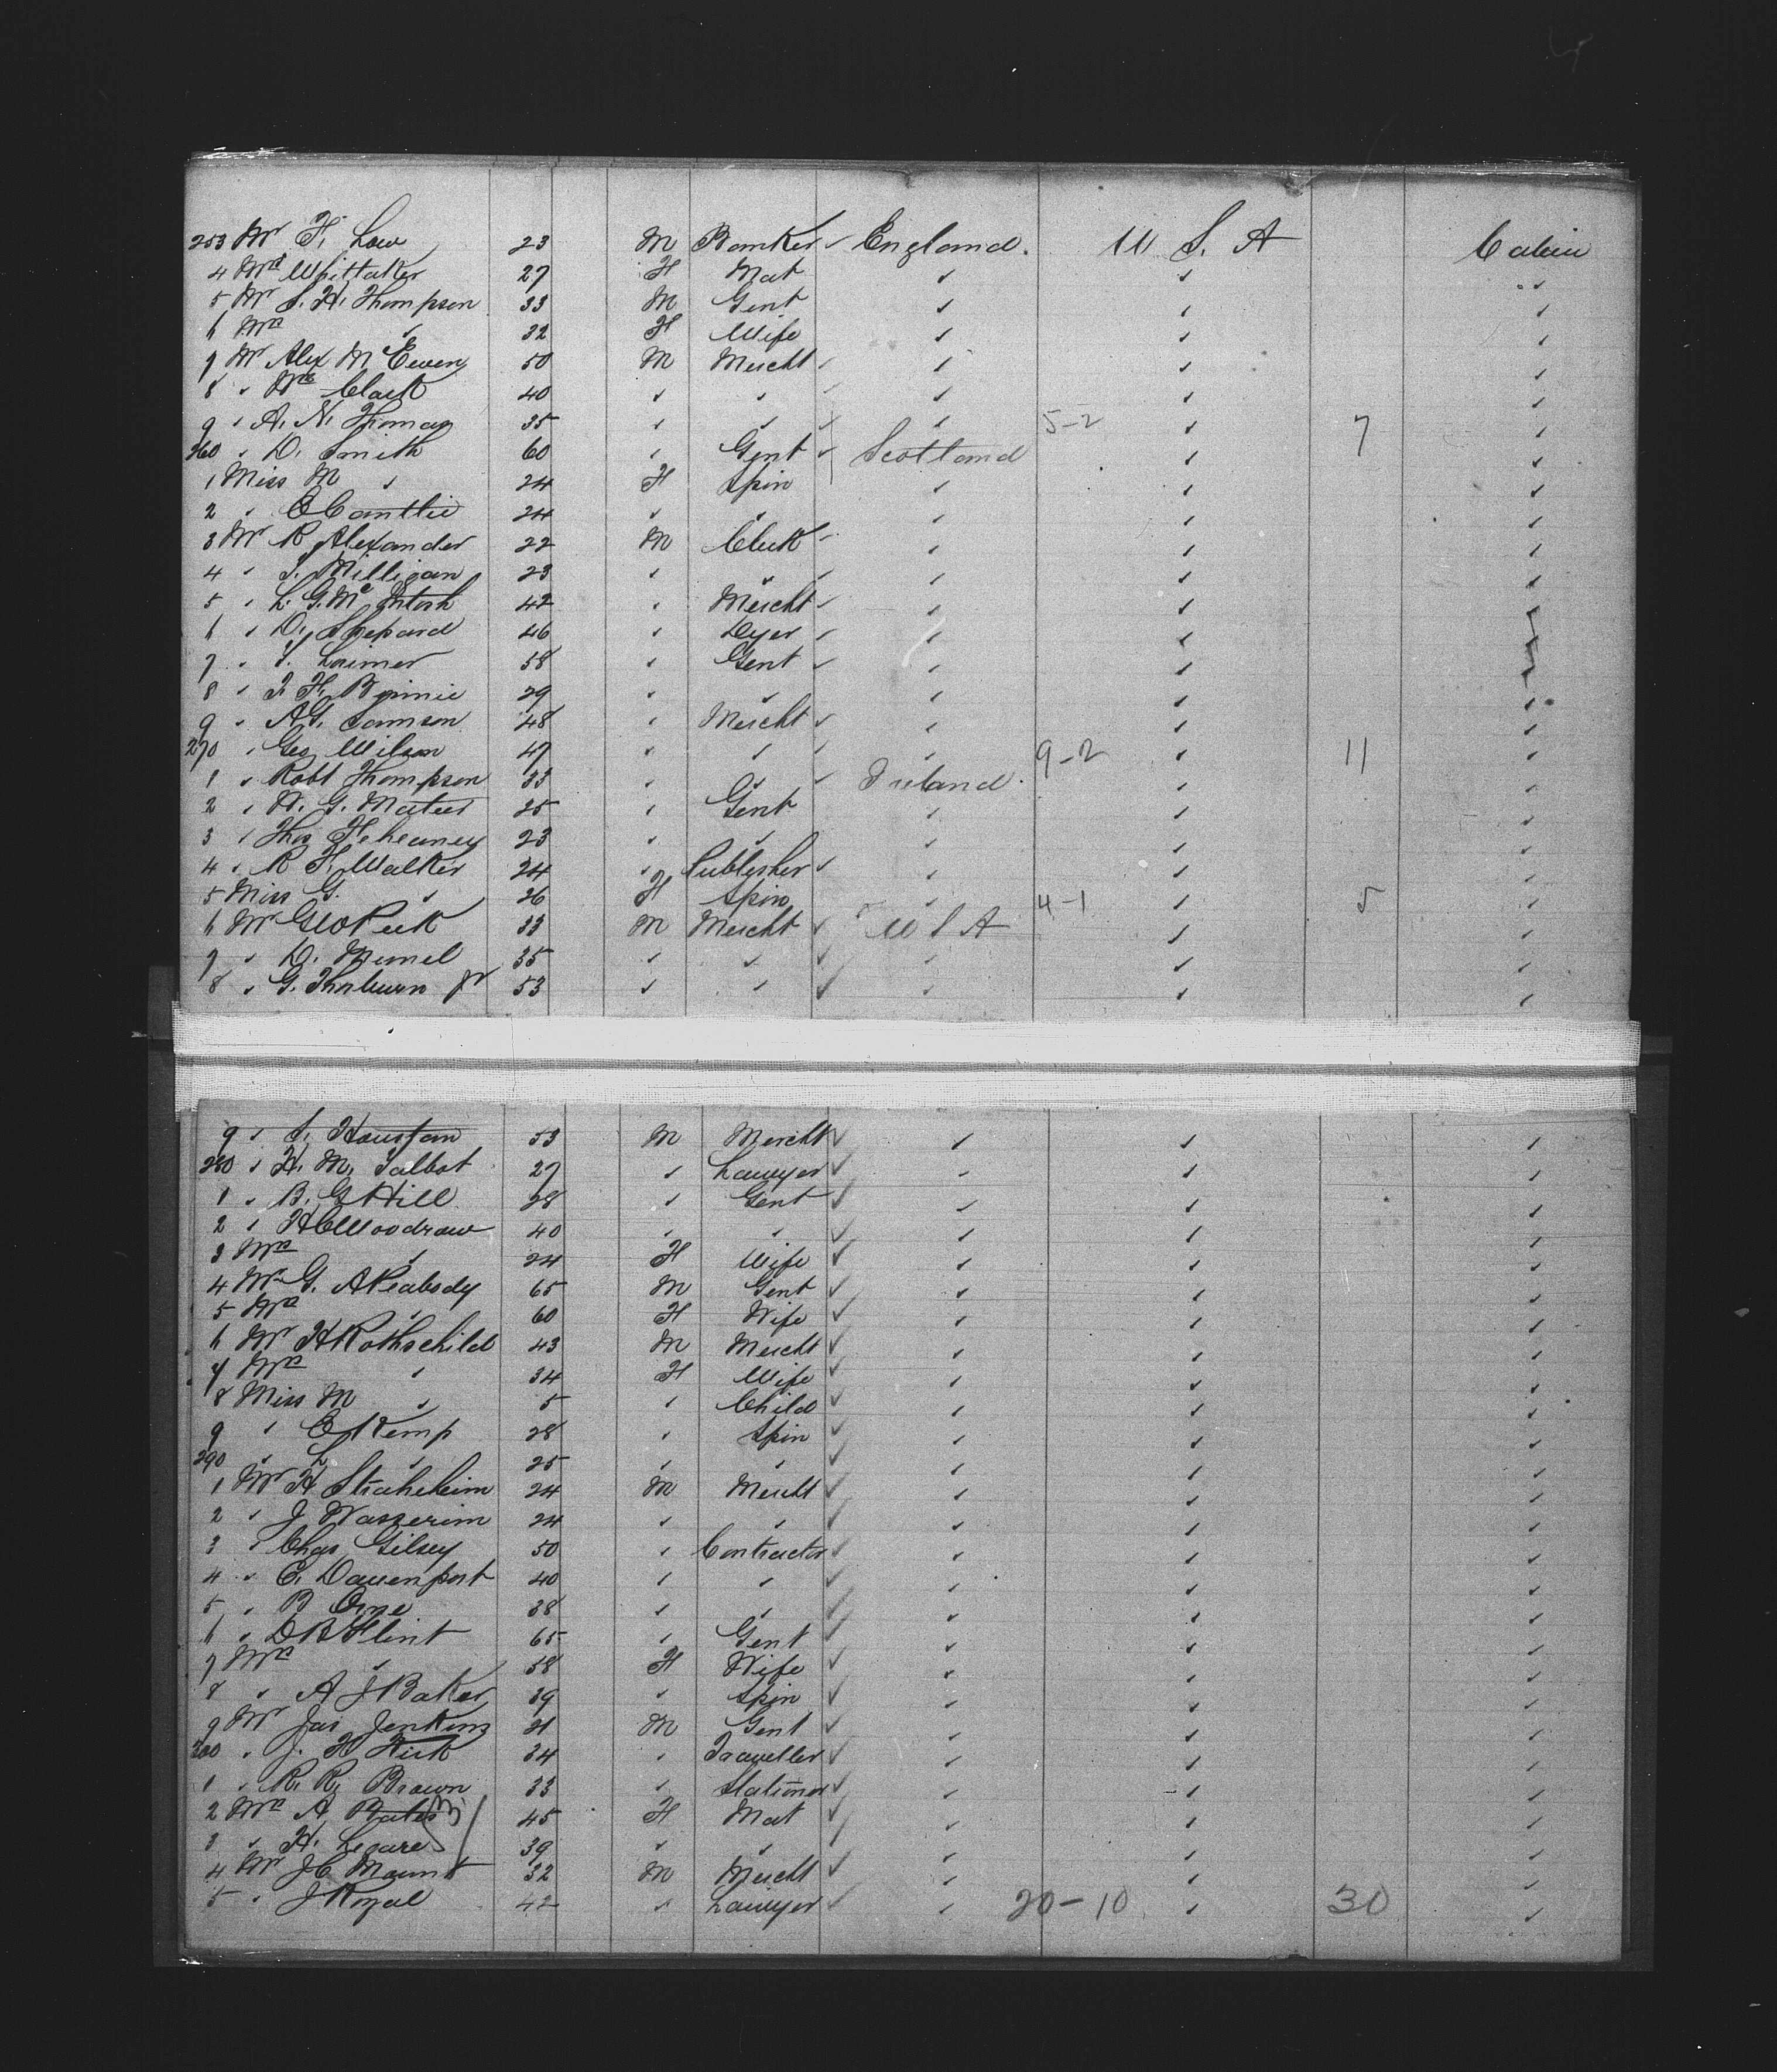 253 Mr H. Low 23 M Banker ✓ England. U. S. A Cabin
4 Mrs Whittaker 27 F Mat ✓ ✓ ✓
5 Mr S. H. Thompson 33 M Gent ✓ ✓ ✓
6 Mrs ✓ 32 F Wife ✓ ✓ ✓
7 Mr Alex McEwen 50 M Mercht ✓ ✓ ✓ ✓
8 ✓ Wm Clark 40 ✓ ✓ ✓ ✓ ✓
9 ✓ A. N. Thomas 35 ✓ ✓ ✓ ✓ 5-2 ✓ 7 ✓
260 ✓ D. Smith 60 ✓ Gent ✓ Scotland ✓ ✓
1 Miss M ✓ 24 F Spin ✓ ✓ ✓
2 ✓ E Cantlie 24 ✓ ✓ ✓ ✓ ✓
3 Mr R Alexander 22 M Clerk ✓ ✓ ✓ ✓
4 ✓ J. Milligan 23 ✓ ✓ ✓ ✓ ✓ ✓
5 ✓ L. G. McIntosh 42 ✓ Mercht ✓ ✓ ✓ ✓
6 ✓ D. Shepard 46 ✓ Dyer ✓ ✓ ✓ ✓
7 ✓ T. Lorimer 58 ✓ Gent ✓ ✓ ✓ ✓
8 ✓ J. H. 29 ✓ ✓ ✓ ✓ ✓
9 ✓ A G. Samson 48 ✓ Mercht ✓ ✓ ✓ ✓
270 ✓ Geo Wilson 47 ✓ ✓ ✓ ✓ 9-2 ✓ 11 ✓
1 ✓ Robt Thompson 33 ✓ ✓ ✓ Ireland. ✓ ✓
2 ✓ G. Mateer 25 ✓ Gent ✓ ✓ ✓
3 ✓ Thos 23 ✓ ✓ ✓ ✓ ✓
4 ✓ R H. Walker 24 ✓ Publisher ✓ ✓ ✓ ✓
5 Miss G. ✓ 26 F Spin ✓ 4-1 ✓ 5 ✓
6 Mr Geo Peck 33 M Mercht ✓ U S A ✓ ✓
7 ✓ D. 35 ✓ ✓ ✓ ✓ ✓ ✓
8 ✓ G. Thorburn Jr 53 ✓ ✓ ✓ ✓ ✓ ✓
9 ✓ S. Houstan 53 M Mercht ✓ ✓ ✓ ✓
280 ✓ H. M. Talbot 27 ✓ Lawyer ✓ ✓ ✓ ✓
1 ✓ B. G Hill 28 ✓ Gent ✓ ✓ ✓ ✓
2 ✓ H C Woodrow 40 ✓ ✓ ✓ ✓ ✓ ✓
3 Mrs ✓ 24 F Wife ✓ ✓ ✓ ✓
4 Mr G. A Peabody 65 M Gent ✓ ✓ ✓ ✓
5 Mrs ✓ 60 F Wife ✓ ✓ ✓ ✓
6 Mr H Rothschild 43 M Mercht ✓ ✓ ✓ ✓
7 Mrs ✓ 34 F Wife ✓ ✓ ✓ ✓
8 Miss M ✓ 5 ✓ Child ✓ ✓ ✓ ✓
9 ✓ E Kemp 28 ✓ Spin ✓ ✓ ✓ ✓
290 ✓ L ✓ 25 ✓ ✓ ✓ ✓ ✓ ✓
1 Mr H Straheheim 24 M Mercht ✓ ✓ ✓ ✓
2 ✓ J Wasserim 24 ✓ ✓ ✓ ✓ ✓ ✓
3 ✓ Chas Gilsey 50 ✓ Contractor ✓ ✓ ✓ ✓
4 ✓ E. Davenport 40 ✓ ✓ ✓ ✓ ✓ ✓
5 ✓ B Orne 38 ✓ ✓ ✓ ✓ ✓ ✓
6 ✓ D B Flint 65 ✓ Gent ✓ ✓ ✓ ✓
7 Mrs ✓ 58 F Wife ✓ ✓ ✓ ✓
8 ✓ A J Baker 39 ✓ Spin ✓ ✓ ✓ ✓
9 Mr Jas Jenkins 21 M Gent ✓ ✓ ✓ ✓
300 ✓ J. H Kirk 34 ✓ Traveller ✓ ✓ ✓ ✓
1 ✓ R. R. Brown 33 ✓ Stationer ✓ ✓ ✓ ✓
2 Mrs A Bates 45 F Mat ✓ ✓ ✓ ✓
3 ✓ H. Legare 39 ✓ ✓ ✓ ✓ ✓ ✓
4 Mr J C Mount 32 M Mercht ✓ ✓ ✓ ✓
5 ✓ J Royal 42 ✓ Lawyer ✓ ✓ 20-10 ✓ 30 ✓